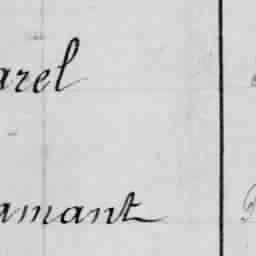 arel
amant